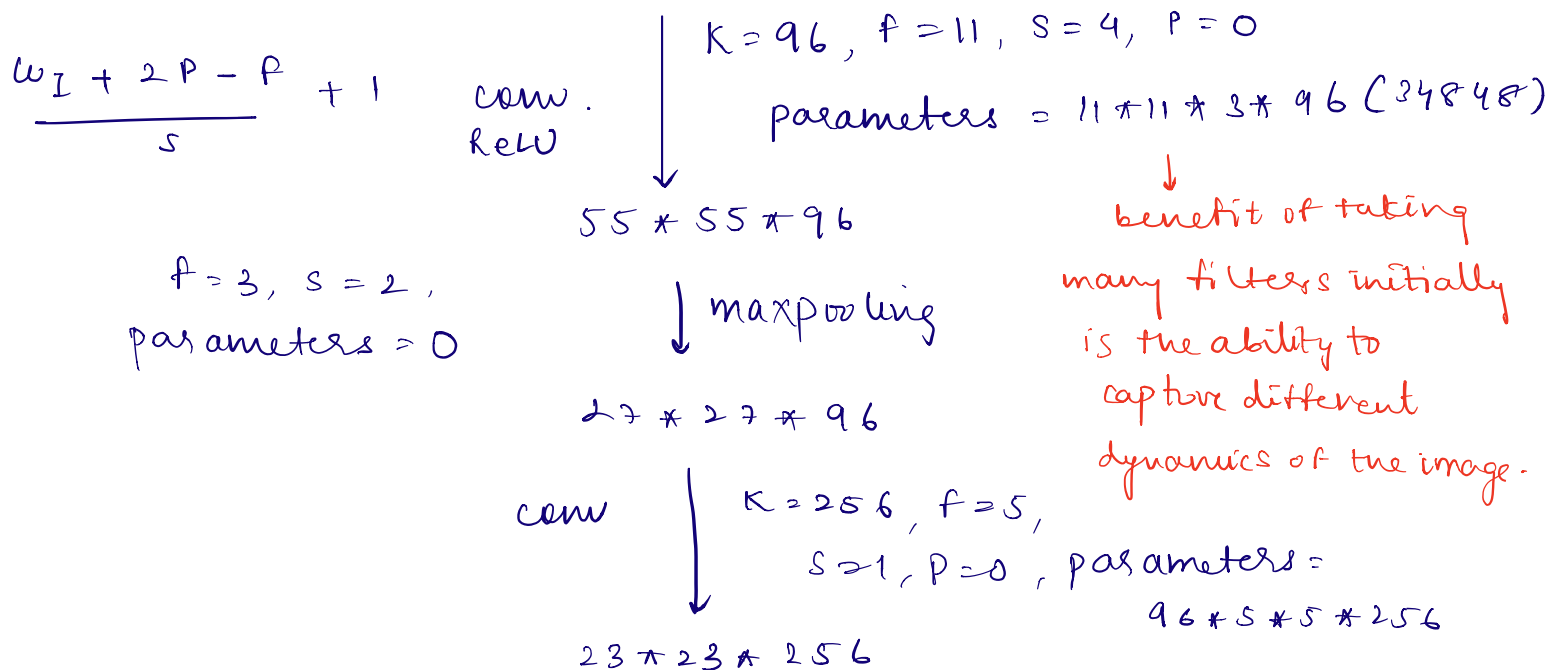 K = 96, f = 11, S = 4, P = 0
W_I + 2P - f / S + 1
conv.
ReLU
parameters = 11 * 11 * 3 * 96 (34848)
55 * 55 * 96
benefit of taking
many filters initially
is the ability to
capture different
dynamics of the image.
f = 3, s = 2,
parameters = 0
maxpooling
27 * 27 * 96
conv
K = 256, f = 5,
S = 1, P = 0, parameters =
96 * 5 * 5 * 256
23 * 23 * 256